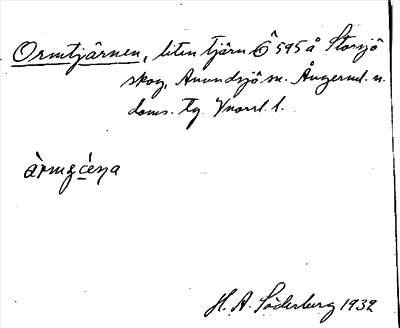 Ormtjärnen, liten tjärn 6̂ 595 å Storsjö
skog, Anundsjö sn. Ångerml. n.
doms. tg Vnorrl. l.
àrmɡćeṇa
H. A. Söderberg 1932